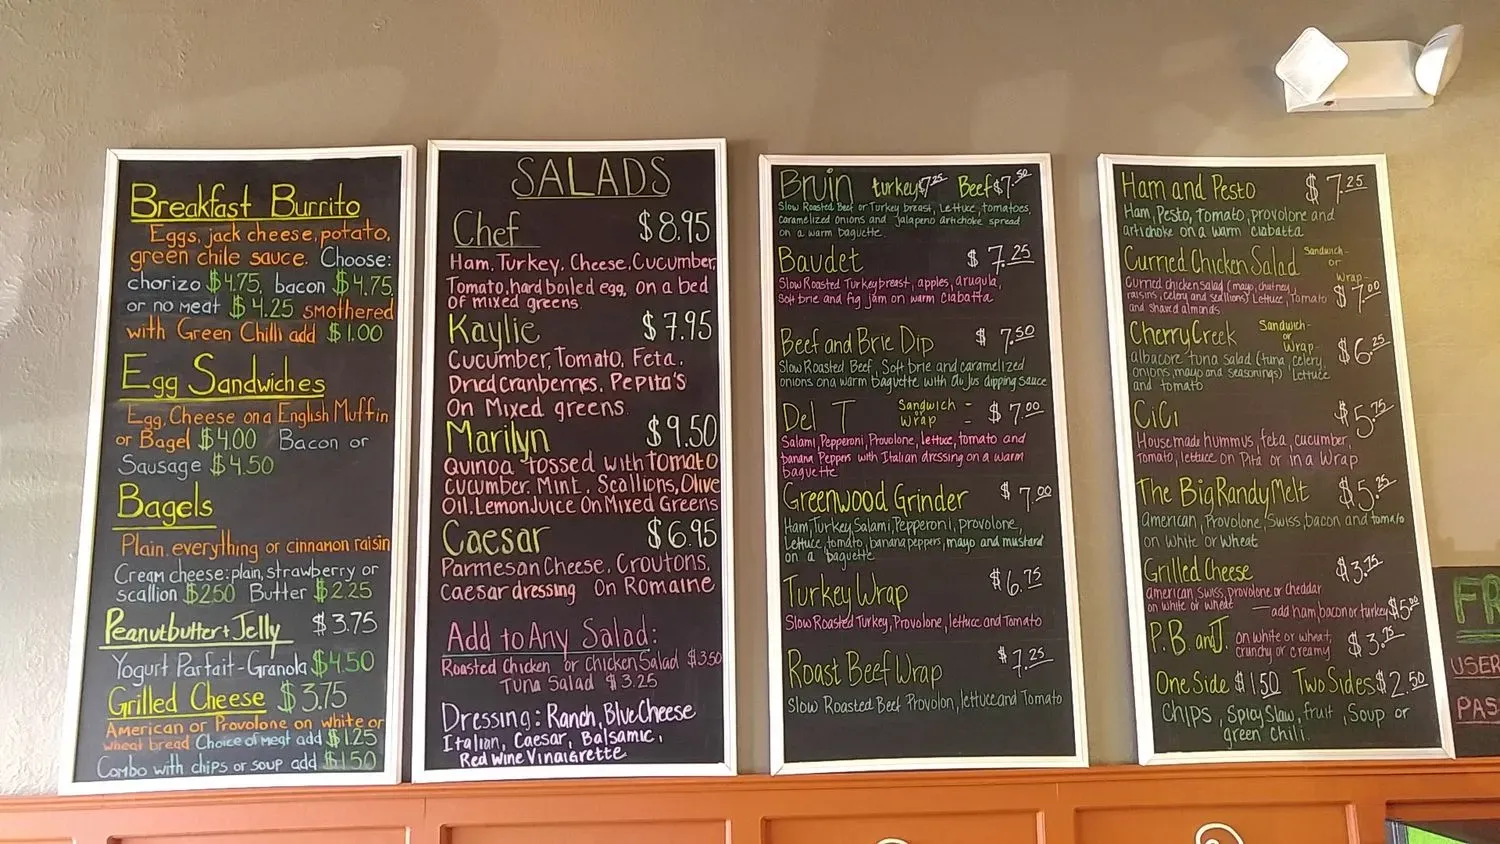 Breakfast Burrito
Eggs, jack cheese, potato,
green chile sauce. Choose:
chorizo $4.75, bacon $4.75
or no meat $4.25 smothered
with Green Chilli add $1.00
Egg Sandwiches
Egg, Cheese on a English Muffin
or Bagel $4.00 Bacon or
Sausage $4.50
Bagels
Plain, everything or cinnamon raisin
Cream cheese: plain, strawberry or
scallion $2.50 Butter $2.25
Peanutbutter + Jelly $3.75
Yogurt Parfait - Granola $4.50
Grilled Cheese $3.75
American or Provolone on white or
wheat bread Choice of meat add $1.25
Combo with chips or soup add $1.50
SALADS
Chef $8.95
Ham, Turkey, Cheese, Cucumber,
Tomato, hard boiled egg, on a bed
of mixed greens
Kaylie $7.95
Cucumber, Tomato, Feta,
Dried cranberries, Pepita's
On Mixed greens
Marilyn $9.50
Quinoa tossed with Tomato
Cucumber, Mint, Scallions, Olive
Oil, Lemon Juice On Mixed Greens
Caesar $6.95
Parmesan Cheese, Croutons,
Caesar dressing On Romaine
Add to Any Salad:
Roasted Chicken or Chicken Salad $3.50
Tuna Salad $3.25
Dressing: Ranch, Blue Cheese
Italian, Caesar, Balsamic,
Red Wine Vinaigrette
Bruin turkey $7.25 Beef $7.50
Slow Roasted Beef or Turkey breast, Lettuce, tomatoes,
caramelized onions and jalapeno artichoke spread
on a warm baguette
Baudet $7.25
Slow Roasted Turkey breast, apples, arugula,
Soft brie and fig jam on warm Ciabatta
Beef and Brie Dip $7.50
Slow Roasted Beef, Soft brie and caramelized
onions on a warm baguette with au jus dipping sauce
Del T Sandwich or Wrap - $7.00
Salami, Pepperoni, Provolone, lettuce, tomato and
banana Peppers with Italian dressing on a warm
baguette
Greenwood Grinder $7.00
Ham, Turkey, Salami, Pepperoni, provolone,
Lettuce, tomato, banana peppers, mayo and mustard
on a baguette
Turkey Wrap $6.75
Slow Roasted Turkey, Provolone, lettuce and Tomato
Roast Beef Wrap $7.25
Slow Roasted Beef Provolon, lettuce and Tomato
Ham and Pesto $7.25
Ham, Pesto, Tomato, provolone and
artichoke on a warm ciabatta
Curried Chicken Salad Sandwich - or Wrap - $7.00
Curried chicken salad (mayo, chutney,
raisins, celery and scallions) Lettuce, Tomato
and shaved almonds
Cherry Creek Sandwich - or Wrap - $6.25
albacore tuna salad (tuna, celery,
onions, mayo and seasonings) Lettuce
and tomato
CiCi $5.75
Housemade hummus, feta, cucumber,
Tomato, lettuce on Pita or in a Wrap
The Big Randy Melt $5.25
American, Provolone, Swiss, bacon and tomato
on white or wheat
Grilled Cheese $3.75
American, Swiss, provolone or cheddar
on white or wheat — add ham, bacon or turkey $5.00
P.B. and J. on white or wheat, $3.75
crunchy or creamy
One Side $1.50 Two Sides $2.50
Chips, Spicy Slaw, fruit, Soup or
green chili.
FR
USER
PAS